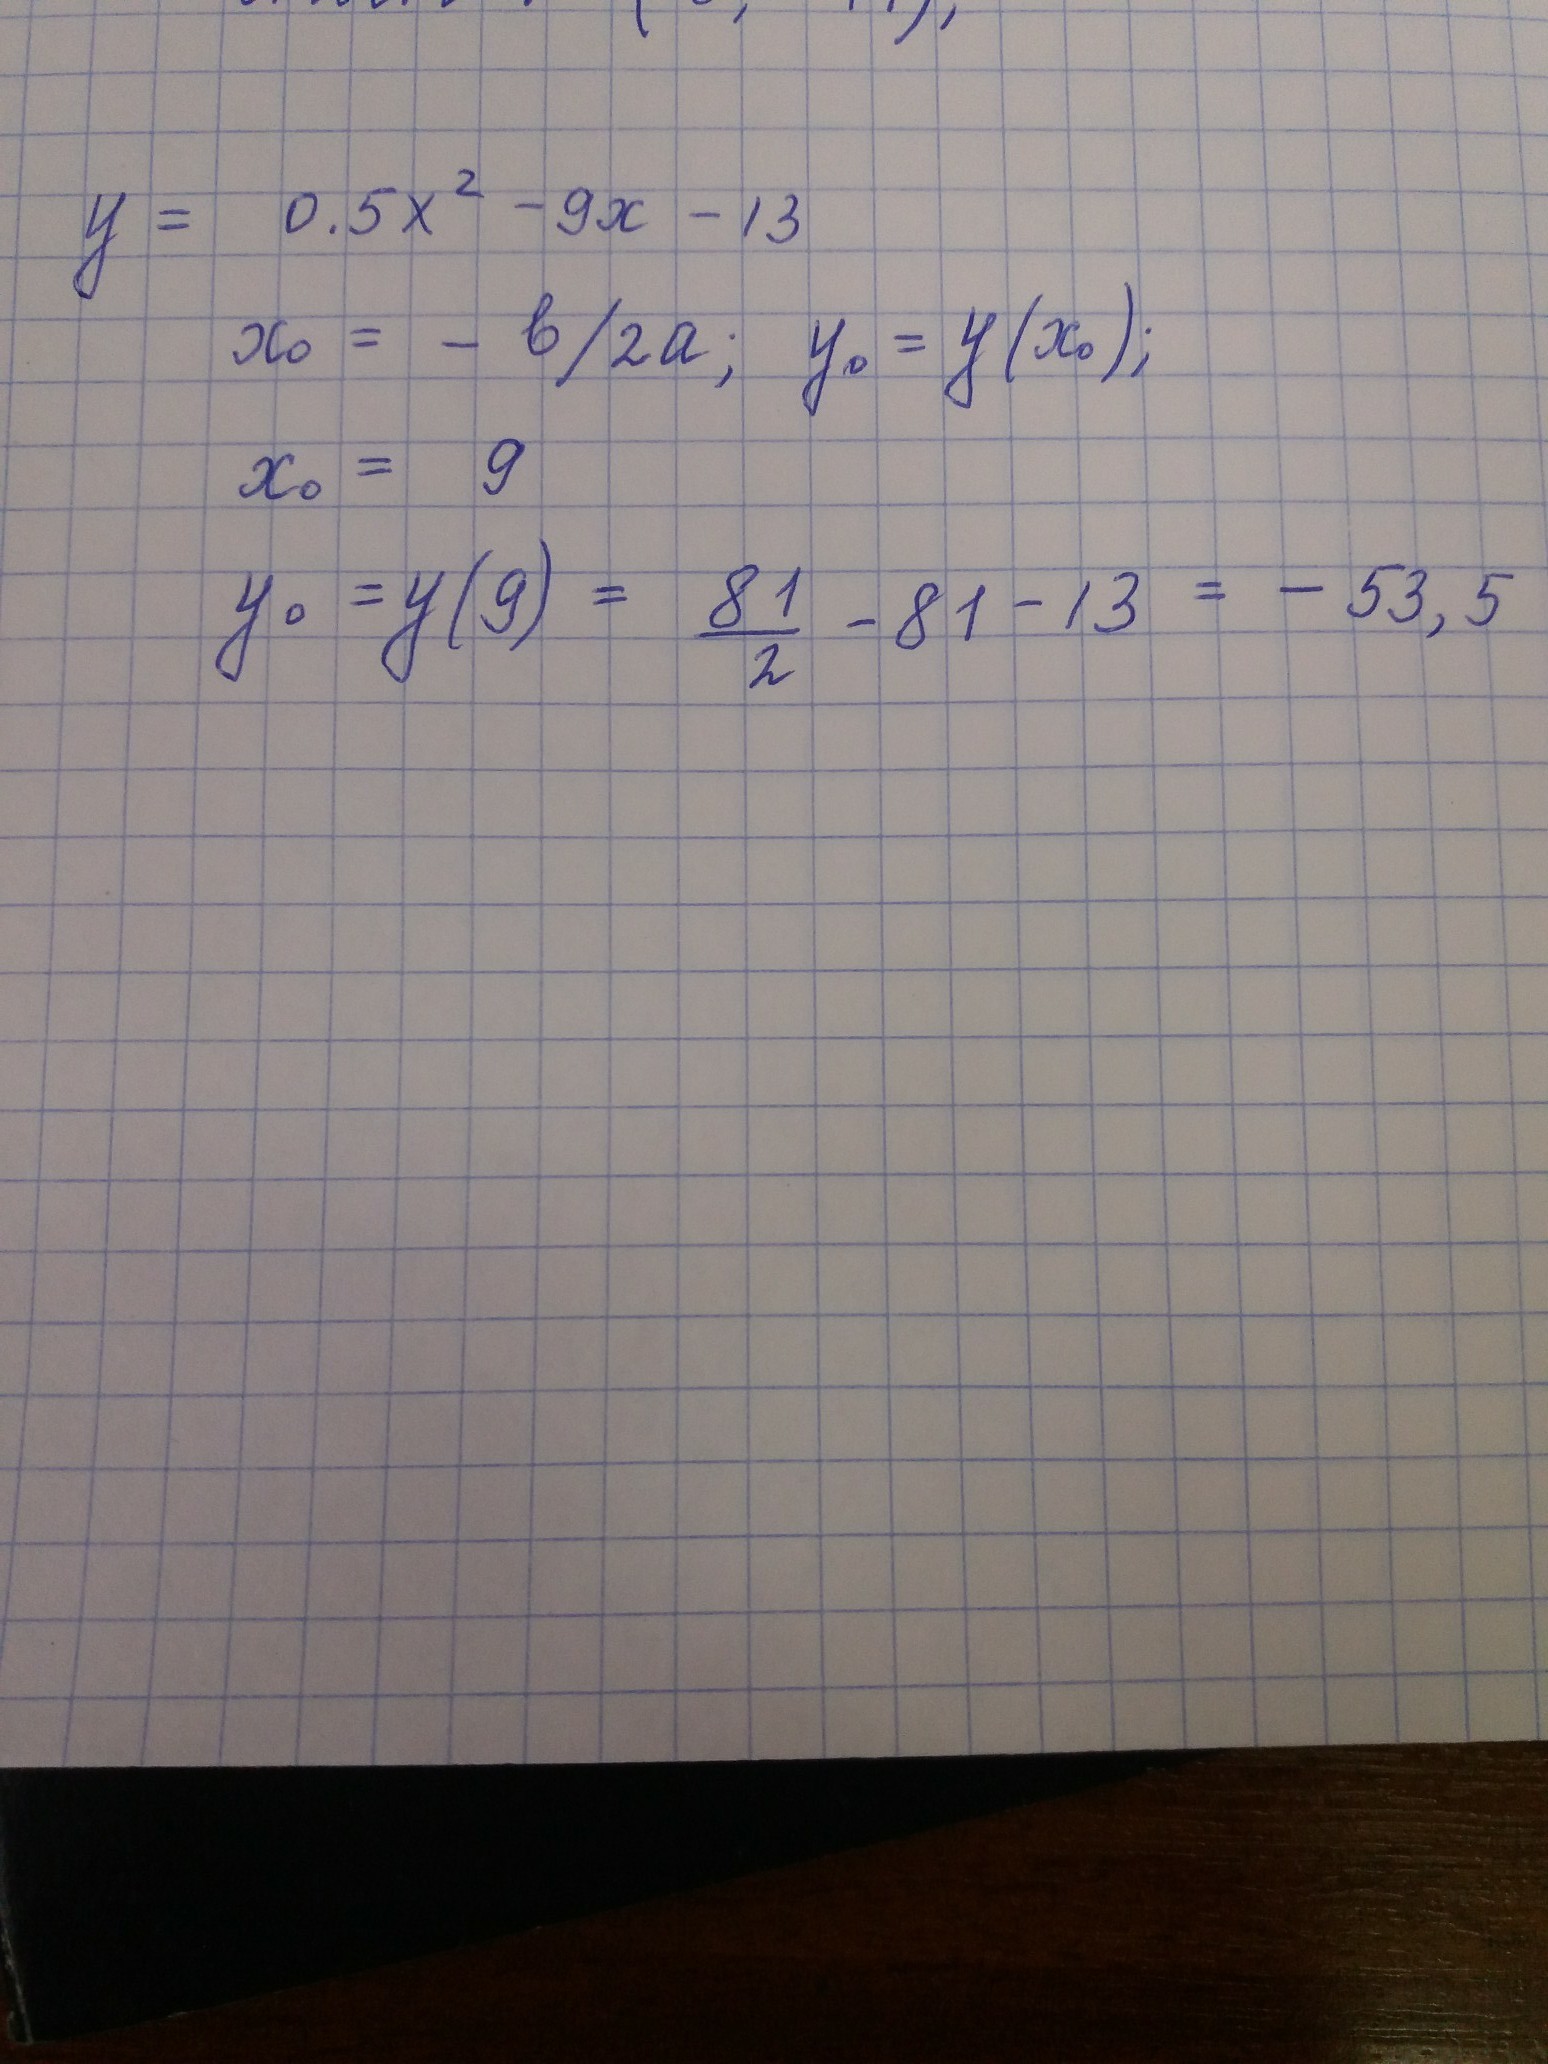 y = 0.5x² - 9x - 13
x₀ = - b/2a; y₀ = y(x₀);
x₀ = 9
y₀ = y(9) = 81/2 - 81 - 13 = - 53,5